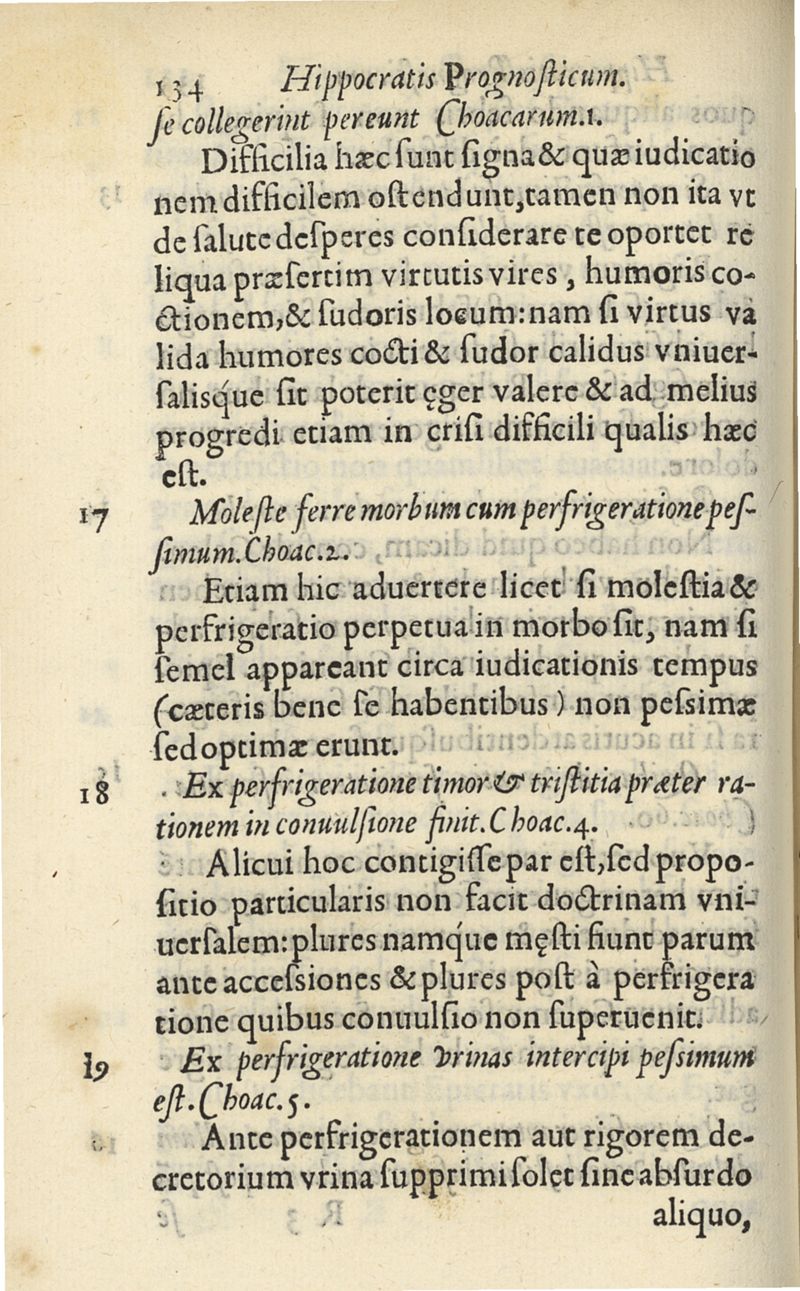 134 Hippocratis Prognoſticum.
ſe collegerint pereunt Choacarum.1.
Difficilia hæc ſunt ſigna & quæ iudicatio
nem difficilem oſtendunt, tamen non ita vt
de ſalute deſperes conſiderare te oportet re
liqua præſertim virtutis vires, humoris co-
ctionem, & ſudoris locum: nam ſi virtus va
lida humores cocti & ſudor calidus vniuer-
ſalisq́ue ſit poterit ęger valere & ad melius
progredi etiam in criſi difficili qualis hæc
eſt.
17 Moleſte ferre morbum cum perfrigeratione peſ-
ſimum. Choac.2.
Etiam hic aduertere licet ſi moleſtia &
perfrigeratio perpetua in morbo ſit, nam ſi
ſemel appareant circa iudicationis tempus
(cæteris bene ſe habentibus) non peſsimæ
ſed optimæ erunt.
18 Ex perfrigeratione timor & triſtitia præter ra-
tionem in conuulſione finit. Choac.4.
Alicui hoc contigiſſe par eſt, ſed propo-
ſitio particularis non facit doctrinam vni-
uerſalem: plures namq́ue męſti fiunt parum
ante acceſsiones & plures poſt à perfrigera
tione quibus conuulſio non ſuperuenit.
19 Ex perfrigeratione vrinas intercipi peſsimum
eſt. Choac.5.
Ante perfrigerationem aut rigorem de-
cretorium vrina ſupprimi ſolet ſine abſurdo
aliquo,